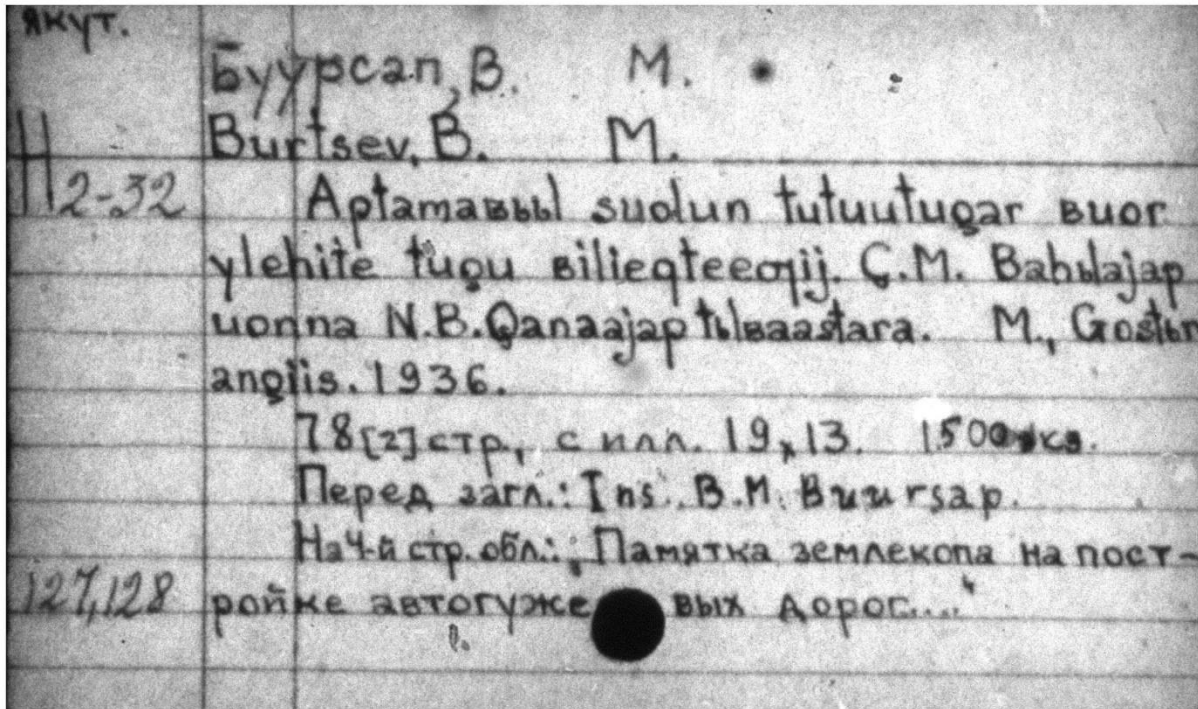 якут.
Буурсап, В. М.
Burtsev, B. M.
H 2-32 Aptamaвььl suolun tutuutugar вuor
ylehite tugu вilieqteeqij. Ç.M. Bahьlajap
uonna N.B.Qanaajap tьlвaastara. M., Gostьr
angiis. 1936.
78[2] стр, с илл. 19x13. 1500 экз.
Перед загл.: Ins. B.M. Buursap.
На 4-й стр. обл.: „Памятка землекопа на пост-
127,128 ройке автогужевых дорог...."